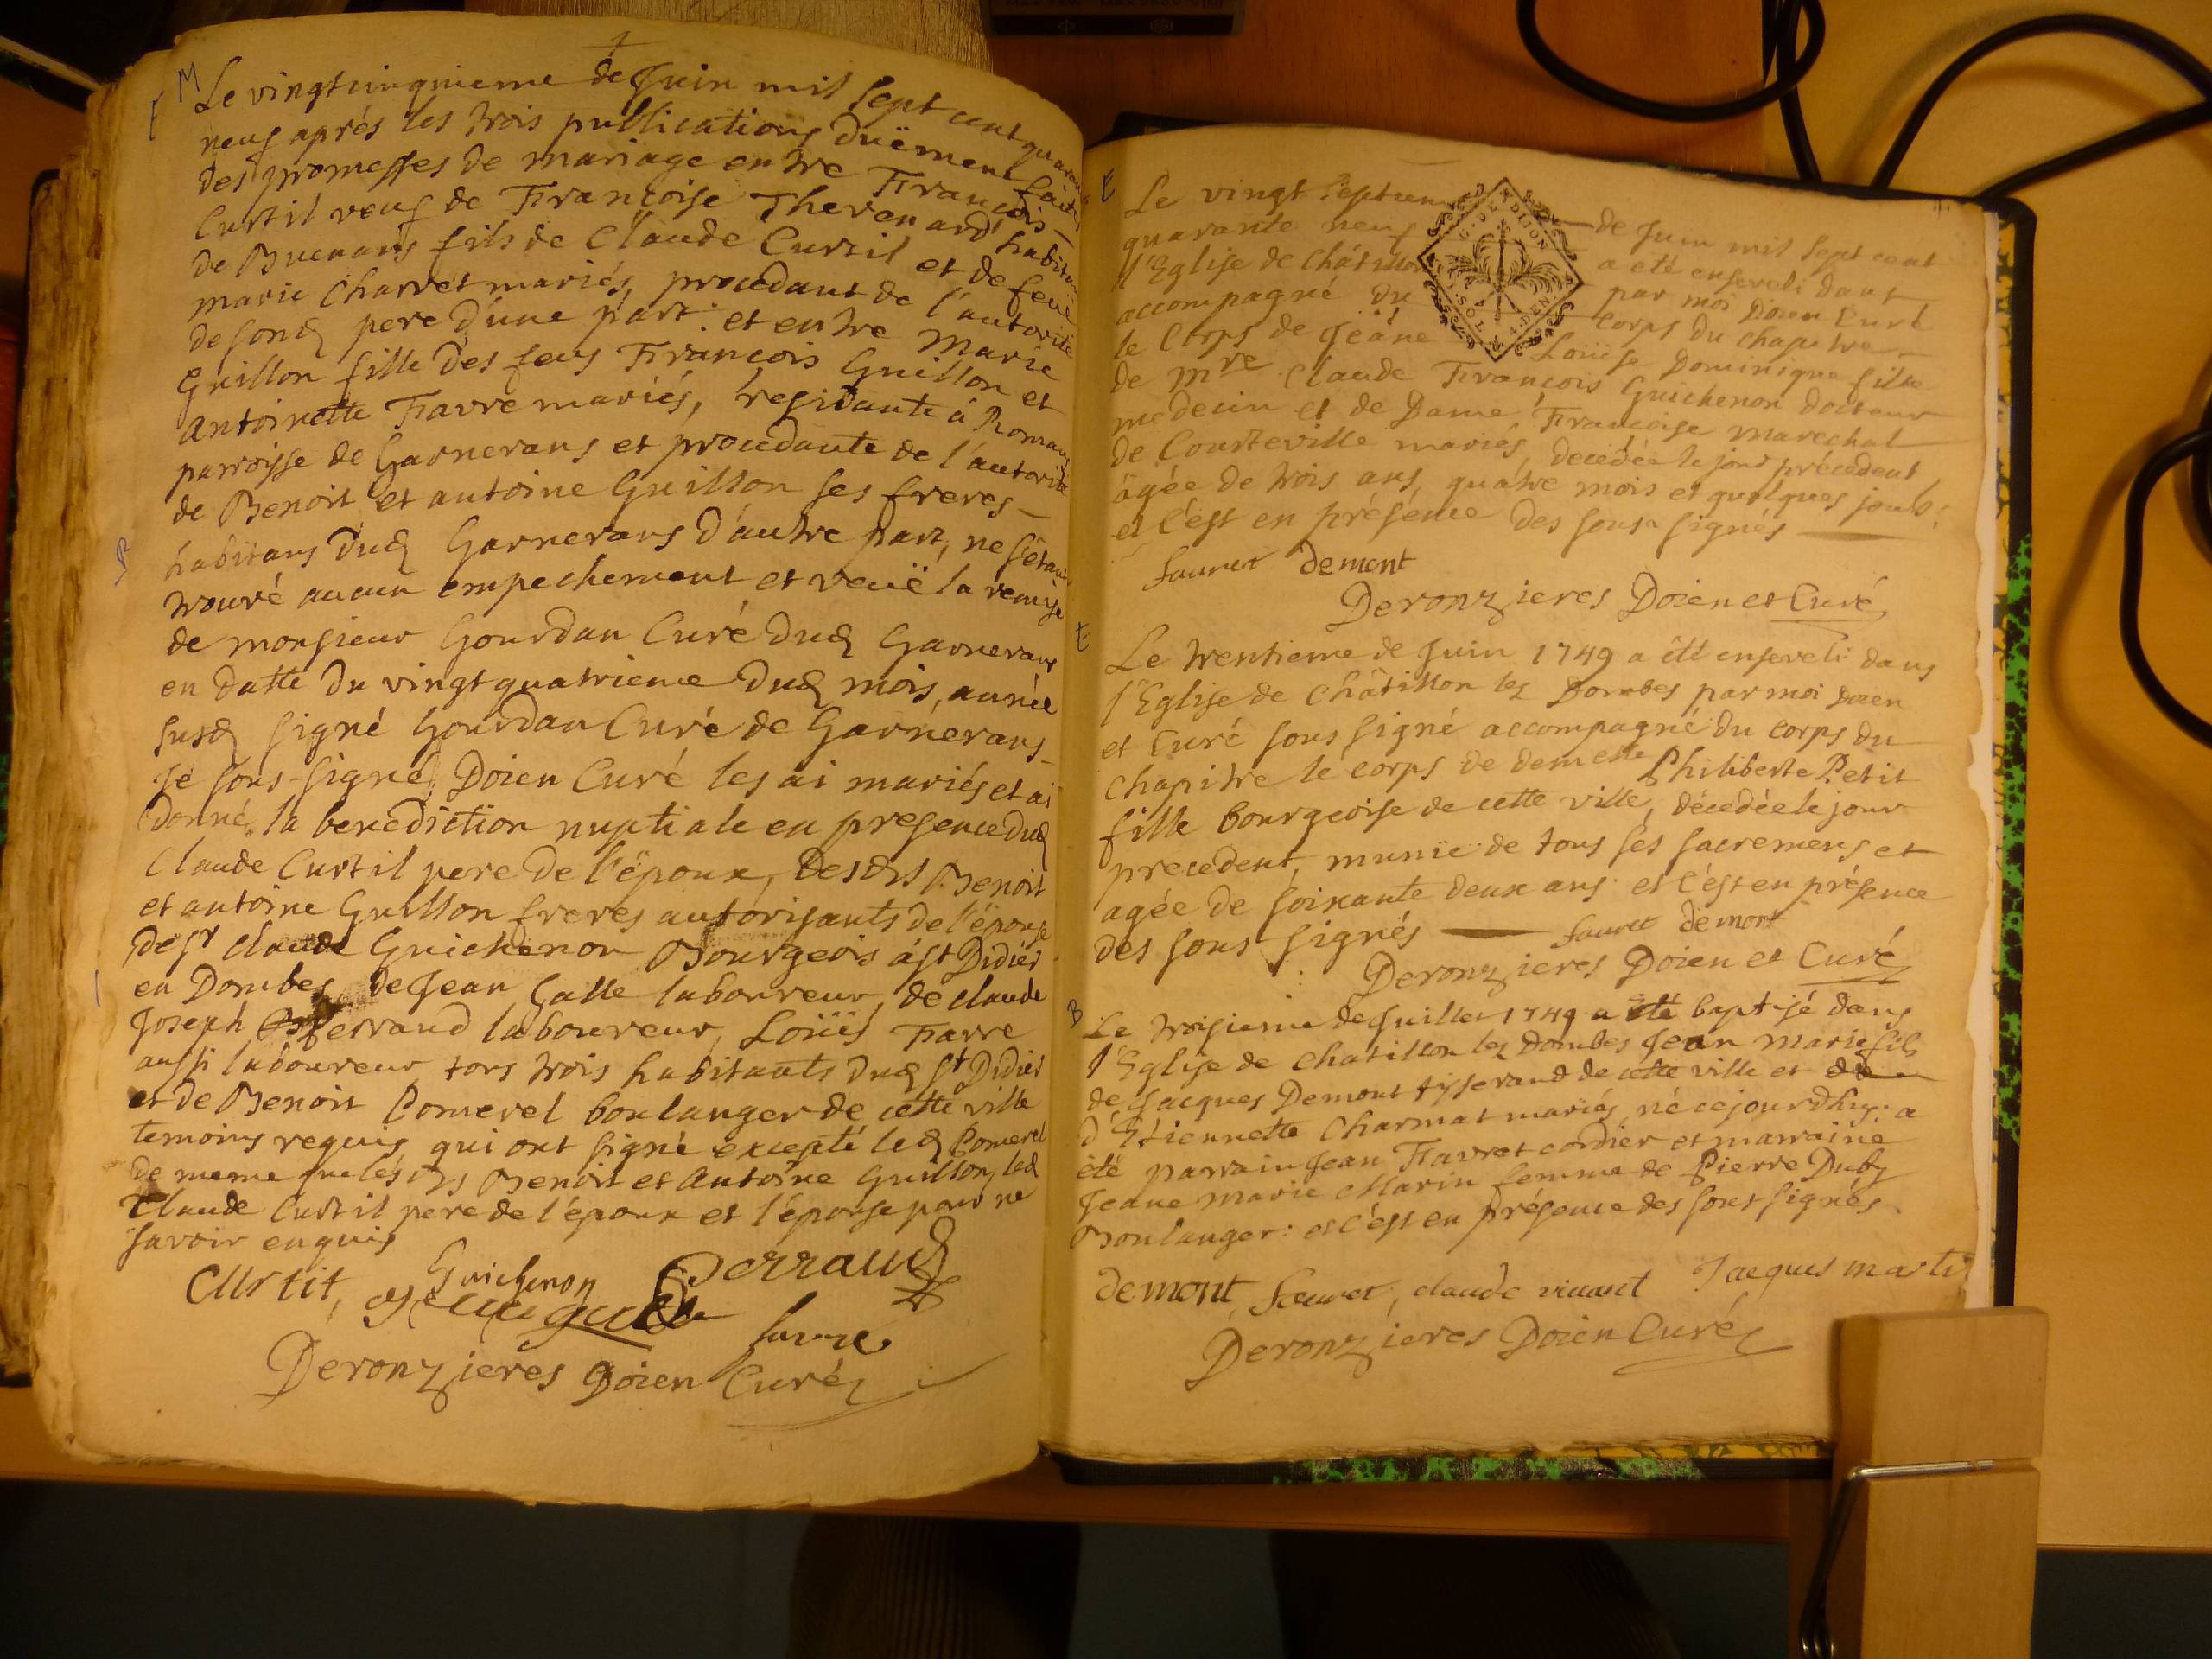 M
Le vingtcinquieme de Juin mil sept cent quarante
neuf aprés les trois publications duëment faites
des promesses de mariage entre François
Curtil veuf de Françoise Thevenard habitant
de Buenans fils de Claude Curtil et de feue
marie Charvet mariés, procedant de l'autorité
de sond pere d'une part. et entre Marie
Guillon fille des feus François Guillon et
Antoinette Favre mariés, residante à Romans
parroisse de Garnerans et procedante de l'autorité
de Benoit et antoine Guillon ses freres
habitans dud Garnerans d'autre part, ne s'étant
trouvé aucun empechement et veuë la remise
de monsieur Gourdan Curé dud Garnerans
en datte du vingtquatrieme dud mois, année
susd signé Gourdan Curé de Garnerans
Je sous-signé Doien Curé les ai mariés et ai
donné la benediction nuptiale en presence dud
Claude Curtil pere de l'époux, desds Benoit
et antoine Guillon freres autorisants de l'épouse
de sr claude Guichenon Bourgeois à st Didier
en Dombes, de Jean Galle laboureur, de claude
Joseph Perraud laboureur, Loüis Favre
aussi laboureur tous trois habitants dud st Didier
et de Benoit Pomerel boulanger de cette ville
temoins requis qui ont signé excepté led Pomerel
de meme que lesds Benoit et Antoine Guillon, led
Claude Curtil pere de l'époux et l'épouse pour ne
savoir enquis
Curtit, Guichenon Perraud
favre
Deronzieres Doien Curé
E
Le vingt septieme de Juin mil sept cent
quarante neuf a eté enseveli dans
l'Eglise de Châtillon par moi Doien Curé
accompagné du corps du chapitre
le corps de Jeane Loüise Dominique fille
de mre Claude François Guichenon docteur
medecin et de Dame Françoise Marechal
de Courteville mariés, decedée le jour précedent
âgée de trois ans, quatre mois et quelques jours:
et c'est en présence des sous-signés
G. DE DIJON
SOL. 4. DEN
fauret demont
Deronzieres Doien et Curé
E
Le trentieme de Juin 1749 a été enseveli dans
l'Eglise de Châtillon lez Dombes par moi Doien
et Curé sous signé accompagné du corps du
chapitre le corps de demelle Philiberte Petit
fille bourgeoise de cette ville, décedée le jour
precedent, munie de tous ses sacremens et
agée de soixante deux ans. et c'est en présence
des sous-signés fauret demont
Deronzieres Doien et Curé
B
Le troisieme de Juillet 1749 a été baptisé dans
l'Eglise de Chatillon lez Dombes Jean Marie fils
de Jacques Demont tisserand de cette ville et
d'Etiennette Charmat mariés, né cejourdhuy: a
été parrain Jean Favret cordier et marraine
Jeane Marie Marin femme de Pierre Duby
Boulanger: et c'est en présence des sous signés
demont, fauret, claude vivant Jacques marti
Deronzieres Doien Curé